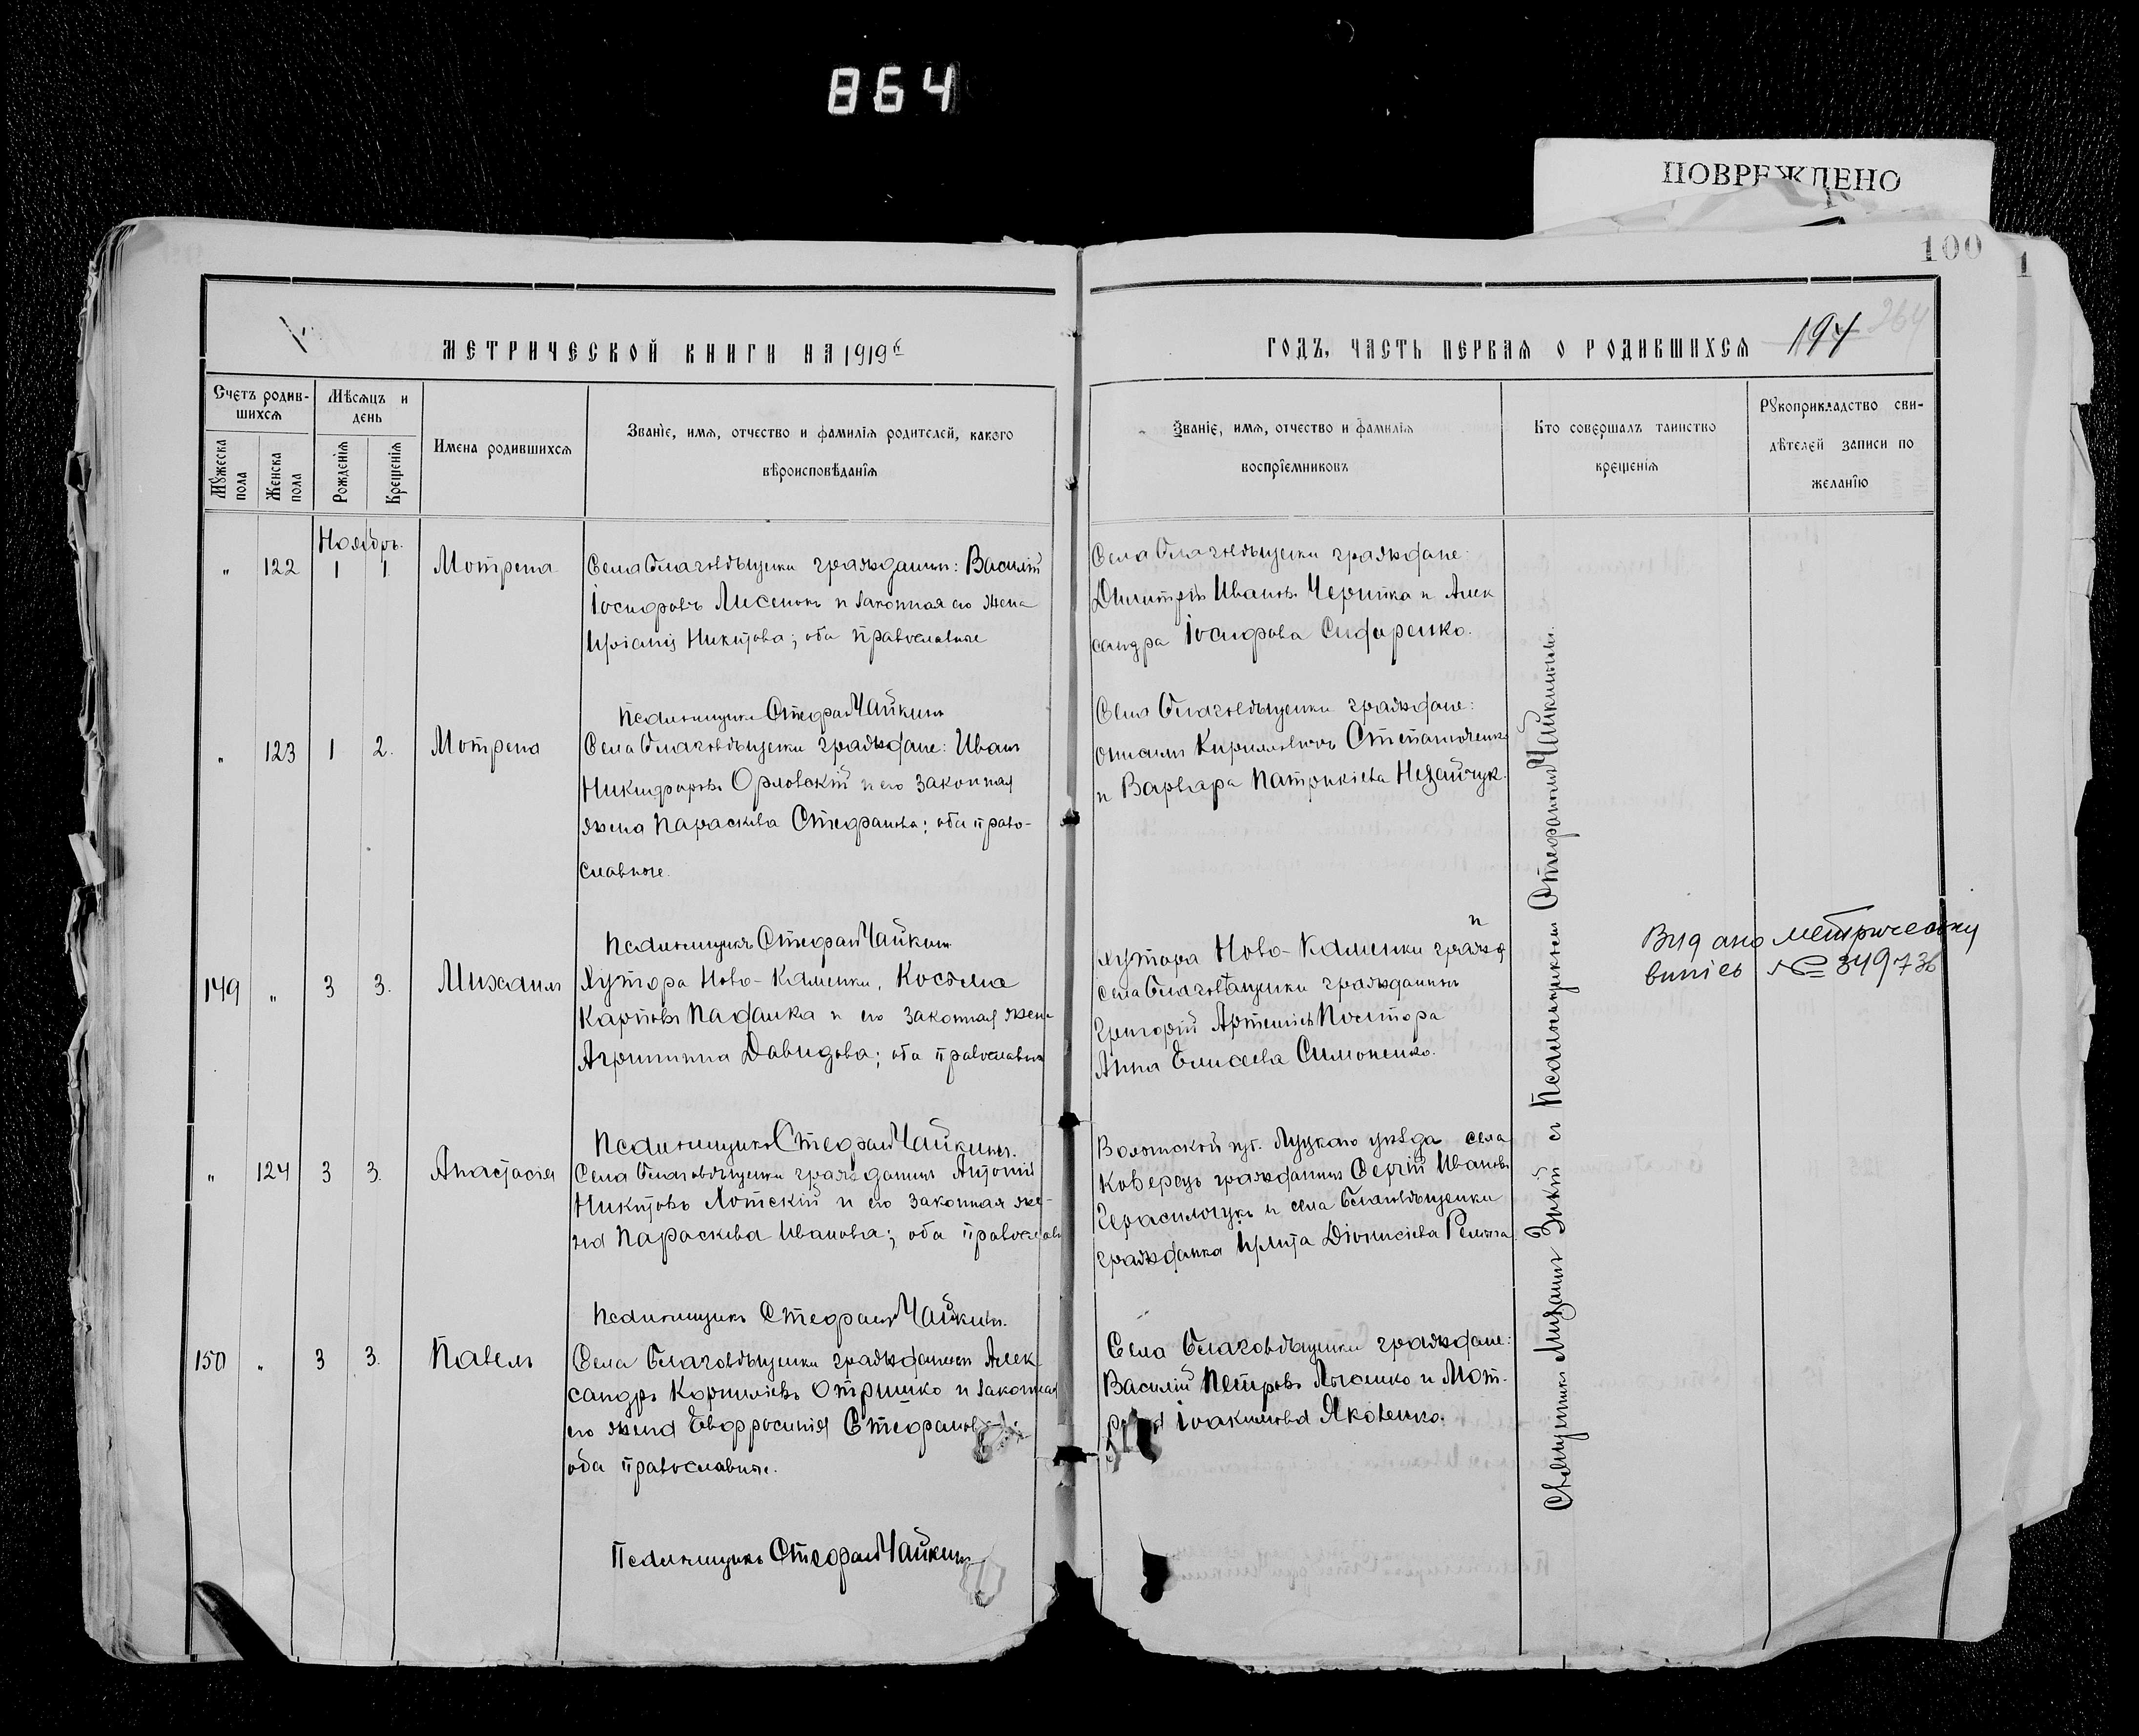 864
ПОВРЕЖДЕНО
100
1
МЕТРИЧЕСКОЙ КНИГИ НА 1919й
ГОДЪ, ЧАСТЬ ПЕРВАЯ О РОДИВШИХСЯ
194
264
Счетъ родив-
шихся
Мѣсяцъ и
день
Мужеска
пола
Женска
пола
Рожденія
Крещенія
Имена родившихся
Званіе, имя, отчество и фамилія родителей, какого
вѣроисповѣданія
Званіе, имя, отчество и фамилія
воспріемниковъ
Кто совершалъ таинство
крещенія
Рукоприкладство сви-
дѣтелей записи по
желанію
Ноябрь.
" 122 1 1 Мотрена
Села Благовѣщенки гражданинъ: Василій
Іосифовъ Лисенокъ и законная его жена
Никитова; оба православные
Села Благовѣщенки граждане:
Димитрій Ивановъ Черника и Алек
сандра Іосифова Сидоренко.
Псаломщикъ Стефанъ Чайкинъ
" 123 1 2. Мотрена
Села Благовѣщенки граждане: Иванъ
Никифоровъ Орловскій и его законная
жена Параскева Стефанова; оба право-
славные.
Села Благовѣщенки граждане:
Кирилловичъ Степанюченко
и Варвара Патрикіева Незайчук.
Псаломщикъ Стефанъ Чайкинъ
149 " 3 3. Михаилъ
Хутора Ново-Каменки, Косьма
Карповъ Падалка и его законная жена
Агриппина Давидова; оба православные
и
Хутора Ново-Каменки гражд
села Благовѣщенки гражданинъ
Григорій Артеміевъ Постора
Анна Елисеева Симоненко.
Видано метрическу
випісь № 349736
Псаломщикъ Стефанъ Чайкинъ.
" 124 3 3. Анастасія
Села Благовѣщенки гражданинъ Антоній
Никитовъ Хотскій и его законная же-
на Параскева Иванова; оба православн
Волынской губ. Луцкаго уѣзда села
Коверецъ гражданинъ Сергій Ивановъ
Герасимчукъ и села Благовѣщенки
гражданка Діонисіева
Псаломщикъ Стефанъ Чайкинъ.
150 " 3 3. Павелъ
Села Благовѣщенки гражданинъ Алек
сандръ Корниліевъ Отришко и законная
его жена Евфросинія Стефанова
оба православные.
Села Благовѣщенки граждане:
Василій Петровъ Лысенко и Мот-
Іоакимова Яковенко.
Псаломщикъ Стефанъ Чайкинъ
Священникъ Михаилъ Зикій съ Псаломщикомъ Стефаномъ Чайкинымъ.